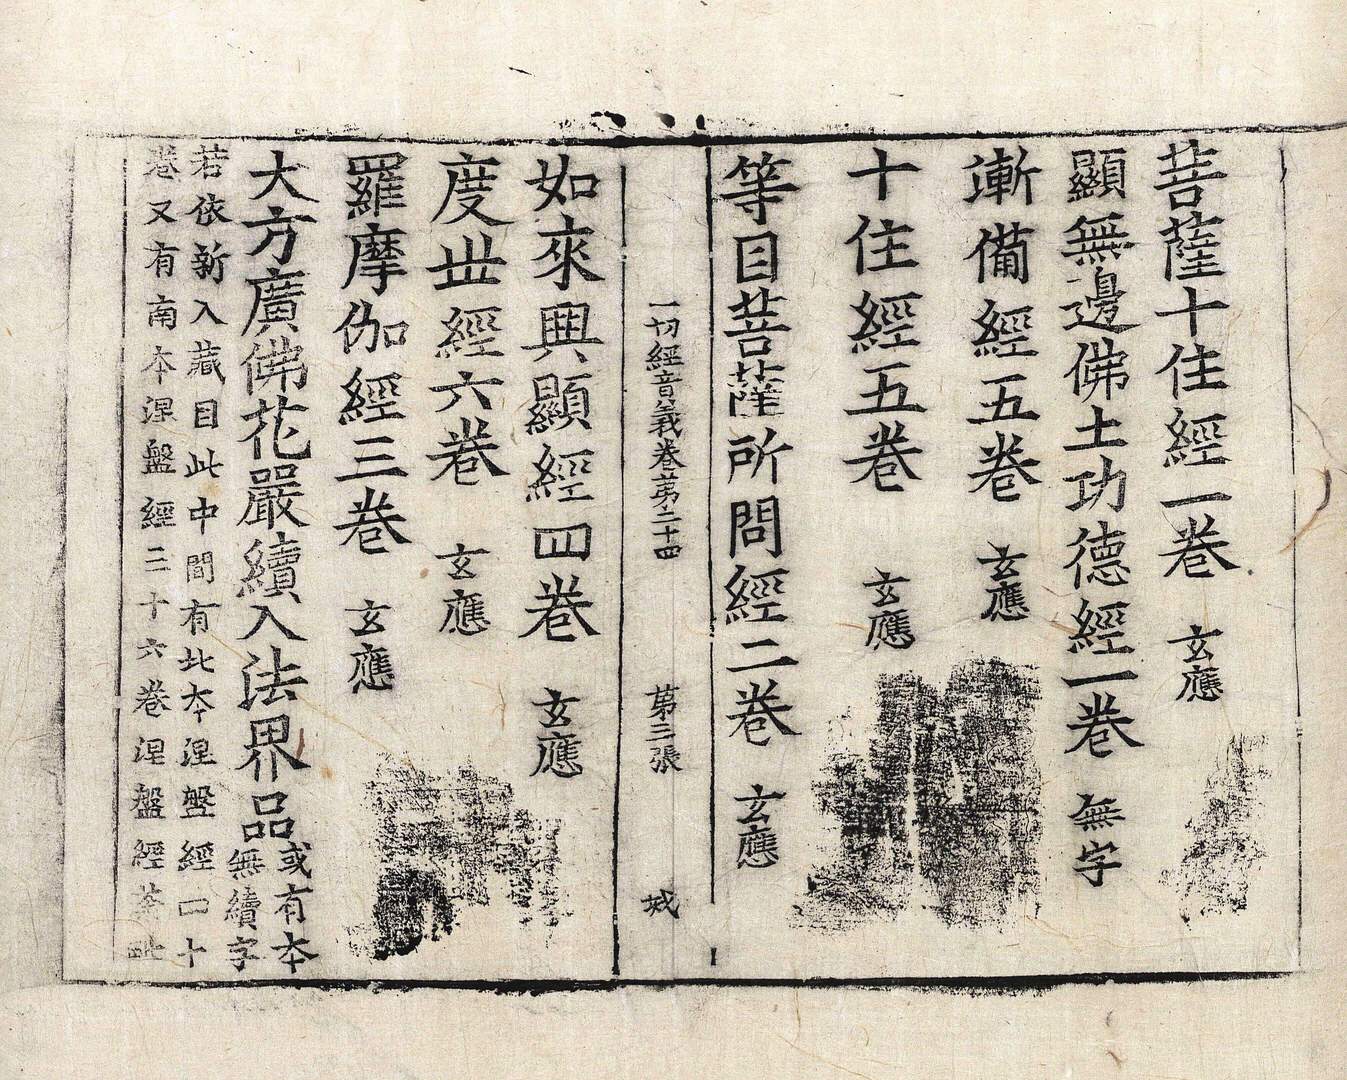 菩薩十住經一卷 玄應
顯無邊佛土功德經一卷 無字
漸備經五卷 玄應
十住經五卷 玄應
等目菩薩所問經二卷 玄應
一切經音義卷第二十四 第三張 城
如來興顯經四卷 玄應
度世經六卷 玄應
羅摩伽經三卷 玄應
大方廣佛花嚴續入法界品 或有本無續字
若依新入藏目此中間有北本涅盤經四十
卷又有南本涅盤經三十六卷涅盤經荼毗